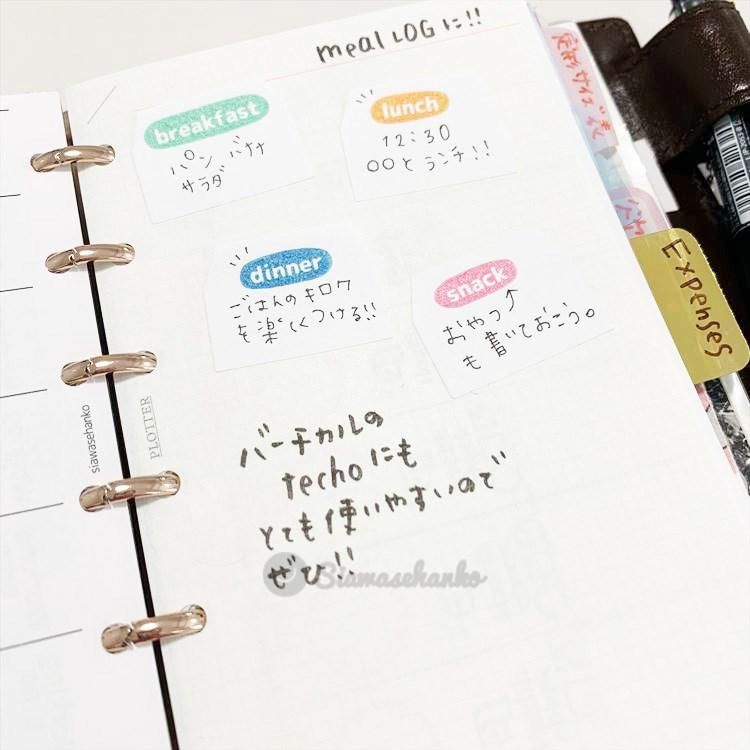 meal LOGに!!
breakfast
パン バナナ
サラダ
lunch
12:30
○○とランチ!!
dinner
ごはんのキロク
も楽しくつける!!
snack
おやつ↑
も書いておこう。
バーチカルの
techoにも
とても使いやすいので
ぜひ!!
Siawasehanko
siawasehanko
PLOTTER
Expenses